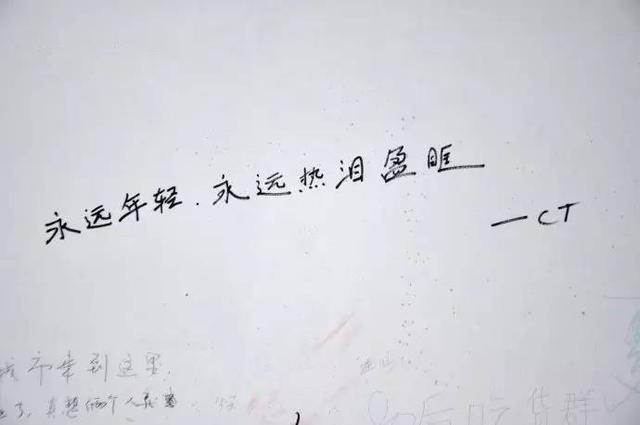 永远年轻.永远热泪盈眶
—CT
带到这里,
真想俩个人
后吃货群